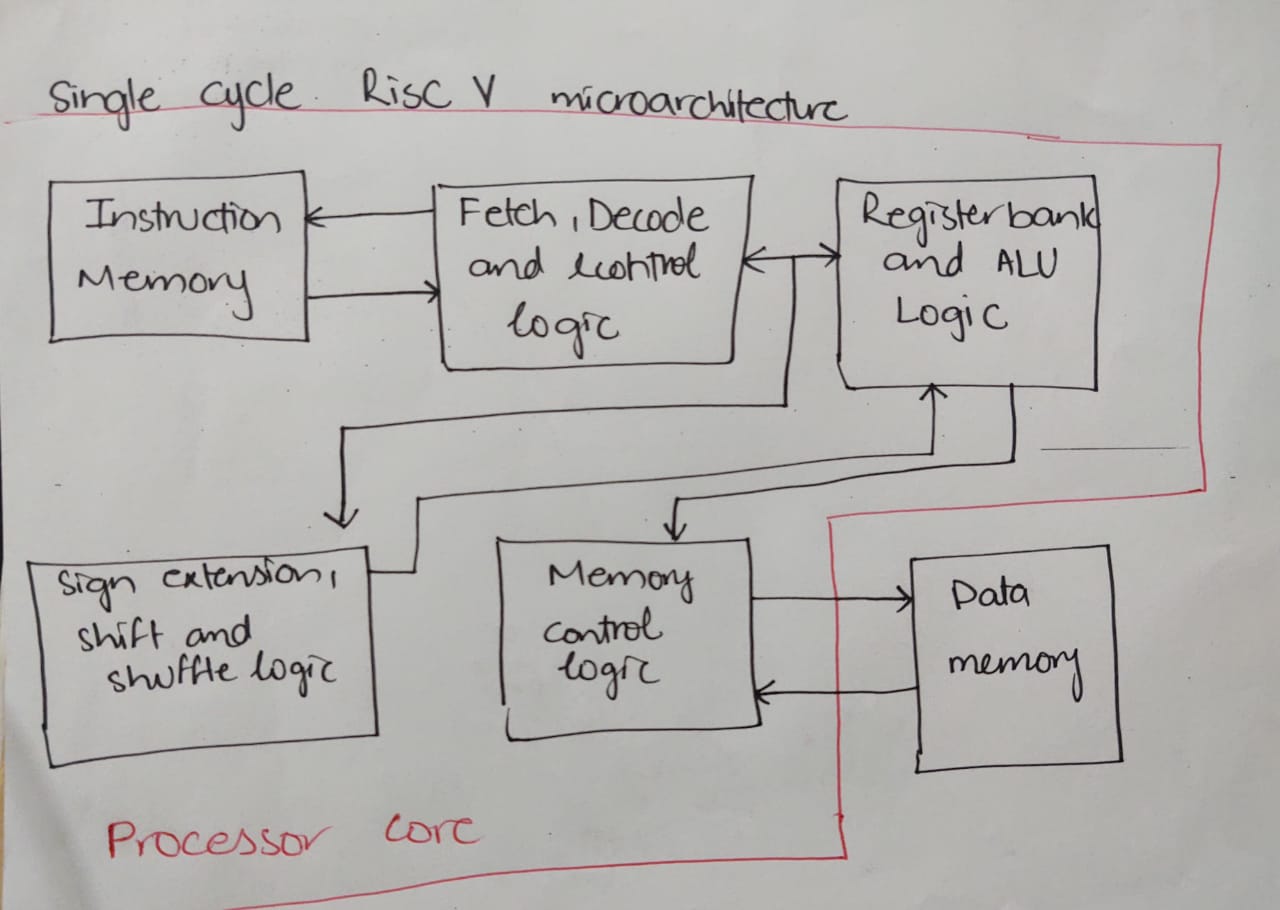 Single cycle RISC V microarchitecture
Instruction
Memory
Fetch, Decode
and control
logic
Registerbank
and ALU
Logic
Sign extension,
shift and
shuffle logic
Memory
control
logic
Data
memory
Processor core